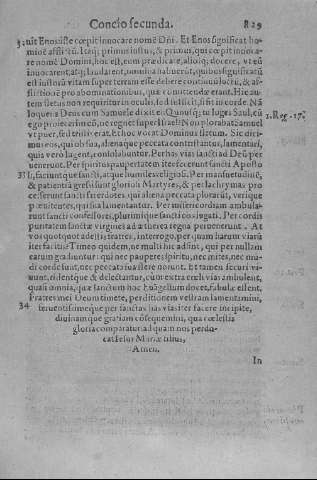 Concio secunda. 829
uit Enos: iste cœpit inuocare nomē Dñi. Et Enos significat ho
minē afflictū. Itaq; primus iustus, & primus, qui cœpit inuoca-
re nomē Domini, hoc est, eum prædicare, alioq; docere, vt eū
inuocarent, atq; laudarent,
est iustorū vitam super terram esse debere continuū luctū, & af-
flictionē pro abominationibus, quæ cōmittendæ erant. Hic au-
tem luctus non requiritur in oculis, sed sufficit, si sit in corde. Nā
loquens Deus cum Samuele dixit ei: Quousq; tu luges Saul, cū 1.Reg.17.
ego proiecerim eū, ne regnet super Israel? Non plorabat Samuel
vt puer, sed tristis erat. Et hoc vocat Dominus fletum. Sic diri-
mus eos, qui ob sua, aliena que peccata contristantur, lamentari,
quia vero lugent, consolabuntur. Per has vias sancti ad Deū per
uenerunt. Per spiritus paupertatem
33 li, faciunt que sancti, atque humiles religiosi. Per mansuetudinē,
& patientiā gressi sunt gloriosi Martyres, & per lachrymas pro
cesserunt sancti sacerdotes, qui aliena peccata plorarūt, verique
pœnitentes, qui sua lamentantur. Per misericordiam ambula-
runt sancti confessores, plurimique sancti coniugati. Per cordis
puritatem sanctæ virgines ad æterea regna peruenerunt. At
vos quotquot adestis fratres, interrogo, per quam harum viarū
iter facitis? Timeo quidem, ne multi hic adsint, qui per nullam
earum gradiuntur: qui nec pauperes spiritu, nec mites, nec mū-
di corde sunt, nec peccata sua flere norunt. Et tamen securi vi-
uunt, rident que & delectantur, cum extra cœli vias ambulent,
quasi omnia, quæ sanctum hoc Euāgelium docet, fabulæ essent.
Fratres mei Deum timete, perditionem vestram lamentamini,
34 feruentissime que per sanctas has vias iter facere incipite,
diuinamque gratiam cōsequemini, qua cœlestia
gloria comparatur, ad quam nos perdu-
cat Iesus Mariæ filius,
Amen.
In